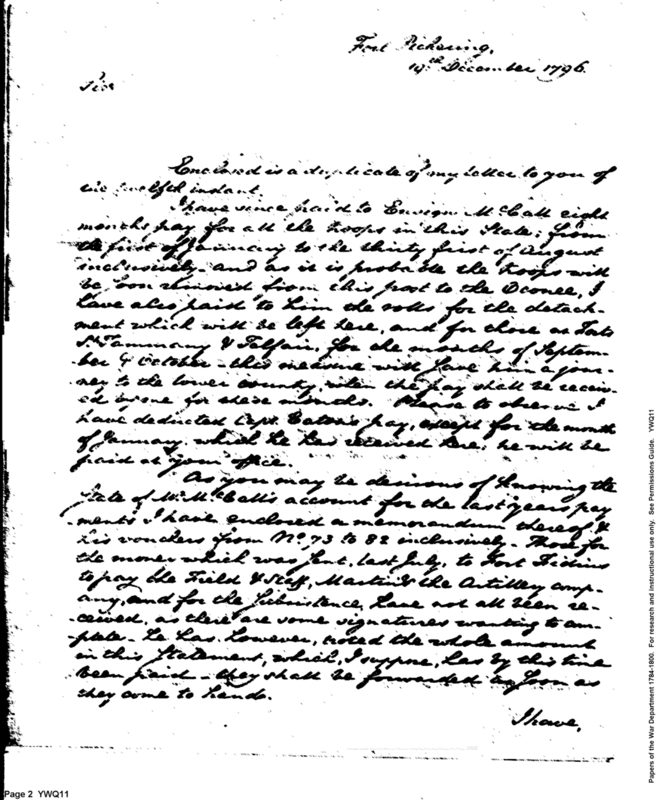 Fort Pickering,
19th December 1796.
Sir
Enclosed is a duplicate of my letter to you of
the twelfth instant.
I have since paid to Ensign McCall eight
months pay for all the troops in this State; from
the first of January to the thirty first of August
inclusively - and as it is probable the troops will
be soon removed from this post to the Oconee, I
have also paid to him the rolls for the detach-
ment which will be left here, and for those at Forts
St Tammany & Telfair, for the months of Septem-
ber & October - this measure will save him a jour-
ney to the lower country, when the pay shall be receiv-
ed by me for these months. Please to observe I
have deducted Capt. Eaton's pay, except for the month
of January, which he has received here; he will be
paid at your office.
As you may be desirous of knowing the
State of Mr McCall's account for the last years pay
ments I have enclosed a memorandum thereof, &
his vouchers from No. 73 to 82 inclusively - Those for
the money which was sent, last July, to Fort
to pay the Field & Staff, Martin's the Artillery comp-
any, and for the Subsistence, have not all been re-
ceived, as there are some signatures wanting to
-plete - he has, however, noted the whole amount
in this Statement, which, I suppose, has by this time
been paid - they shall be forwarded as soon as
they come to hand.
I have,
Page 2 YWQ11
Papers of the War Department 1784-1800. For research and instructional use only. See Permissions Guide. YWQ11